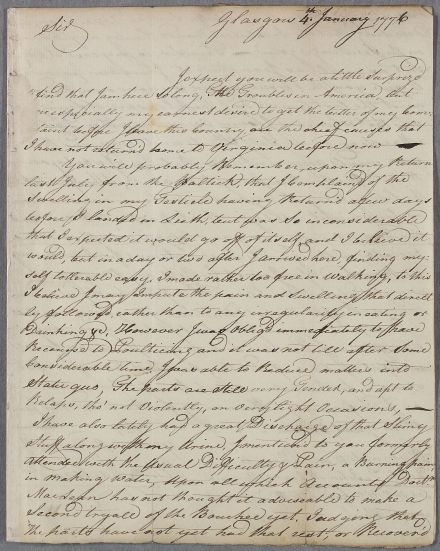 Glasgow 4th January 1776
Sir
I expect you will be a little surprized
to find that I am here so long, the Troubles in America, but
more especially my earnest desire to get the better of my Com-
plaint before I leave this Country, are the chief causes that
I have not returnd home to Virginia before now
You will probably Remember, upon my Return
last July from the Baltick, that I Complaind of the
Swelling in my Testicle having Returnd a few days
before I landed in Leith, but was so inconsiderable
that I expected it would go off of itself, and I believe it
would, but in a day or two after I arrived here, finding my-
self tollerable easy, I made rather too free in walking, to this
I believe I may impute the pain and Swelling that direct-
ly followed, rather than to any irregularity in eating or
Drinking &c. However I was Obligd immediately to have
Recourse to Poulticing and it was not till after some
Considerable time I was able to Reduce matters into
State quo, The parts are still very Tender, and apt to
Relaps, tho' not Violently, on very slight Occasions,
I have also lately had a great Discharge of that Slimy
Stuff along with my Urine I mentiond to you formerly
attended with the usual Difficulty & Pain, a Burning pain
in making Water, upon all which Accounts Doctr
has not thought it adviseable to make a
Second tryall of the Bougies yet, Judging that
the parts have not yet had that rest, or Recoverd